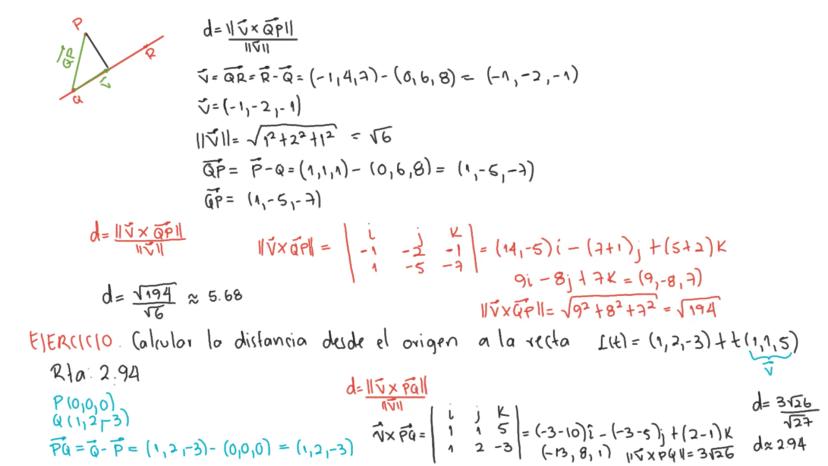 P
QP
v
Q
R
d = ||v⃗ × QP⃗|| / ||v⃗||
v⃗ = QR⃗ = R⃗ - Q⃗ = (-1,4,7) - (0,6,8) = (-1,-2,-1)
v⃗ = (-1,-2,-1)
||v⃗|| = √1²+2²+1² = √6
QP⃗ = P⃗ - Q = (1,1,1) - (0,6,8) = (1,-5,-7)
QP⃗ = (1,-5,-7)
d = ||v⃗ × QP⃗|| / ||v⃗||
||v⃗ × QP⃗|| = | i j k | -1 -2 -1 | 1 -5 -7 | = (14,-5)i - (7+1)j + (5+2)k
9i - 8j + 7k = (9,-8,7)
||v⃗ × QP⃗|| = √9²+8²+7² = √194
d = √194 / √6 ≈ 5.68
EJERCICIO. Calcular la distancia desde el origen a la recta L(t) = (1,2,-3) + t(1,1,5)
v⃗
Rta: 2.94
P(0,0,0)
Q(1,2,-3)
PQ⃗ = Q⃗ - P⃗ = (1,2,-3) - (0,0,0) = (1,2,-3)
d = ||v⃗ × PQ⃗|| / ||v⃗||
v⃗ × PQ⃗ = | i j k | 1 1 5 | 1 2 -3 | = (-3-10)i - (-3-5)j + (2-1)k
(-13, 8, 1) ||v⃗ × PQ|| = 3√26
d = 3√26 / √27
d ≈ 2.94